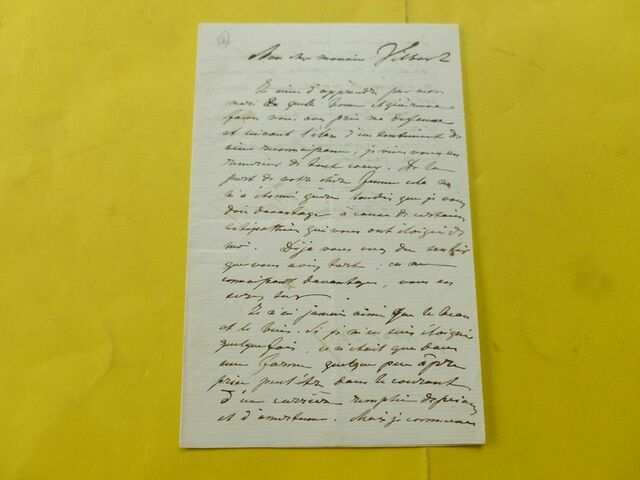 Mon cher monsieur Vilbort
Je viens d'apprendre par mon
mari de quelle bonne et généreuse
façon vous avez pris ma défense
et suivant l'élan d'un sentiment de
vive reconnaissance, je viens vous en
remercier de tout cœur. De la
part de votre chère femme cela ne
m'a étonné guère tandis que je vous
dois davantage à cause de certaines
antipathies qui vous ont éloigné de
moi. Déjà vous avez du sentir
que vous aviez tort; en me
connaissant davantage, vous en
serez sur.
Je n'ai jamais aimé que le beau
et le bien. Si je m'en suis éloignée
quelque fois, ce n'était que dans
une forme quelque peu âpre
prise peut être dans le courant
d'une carrière remplie
et d'amertume. Mais je commence